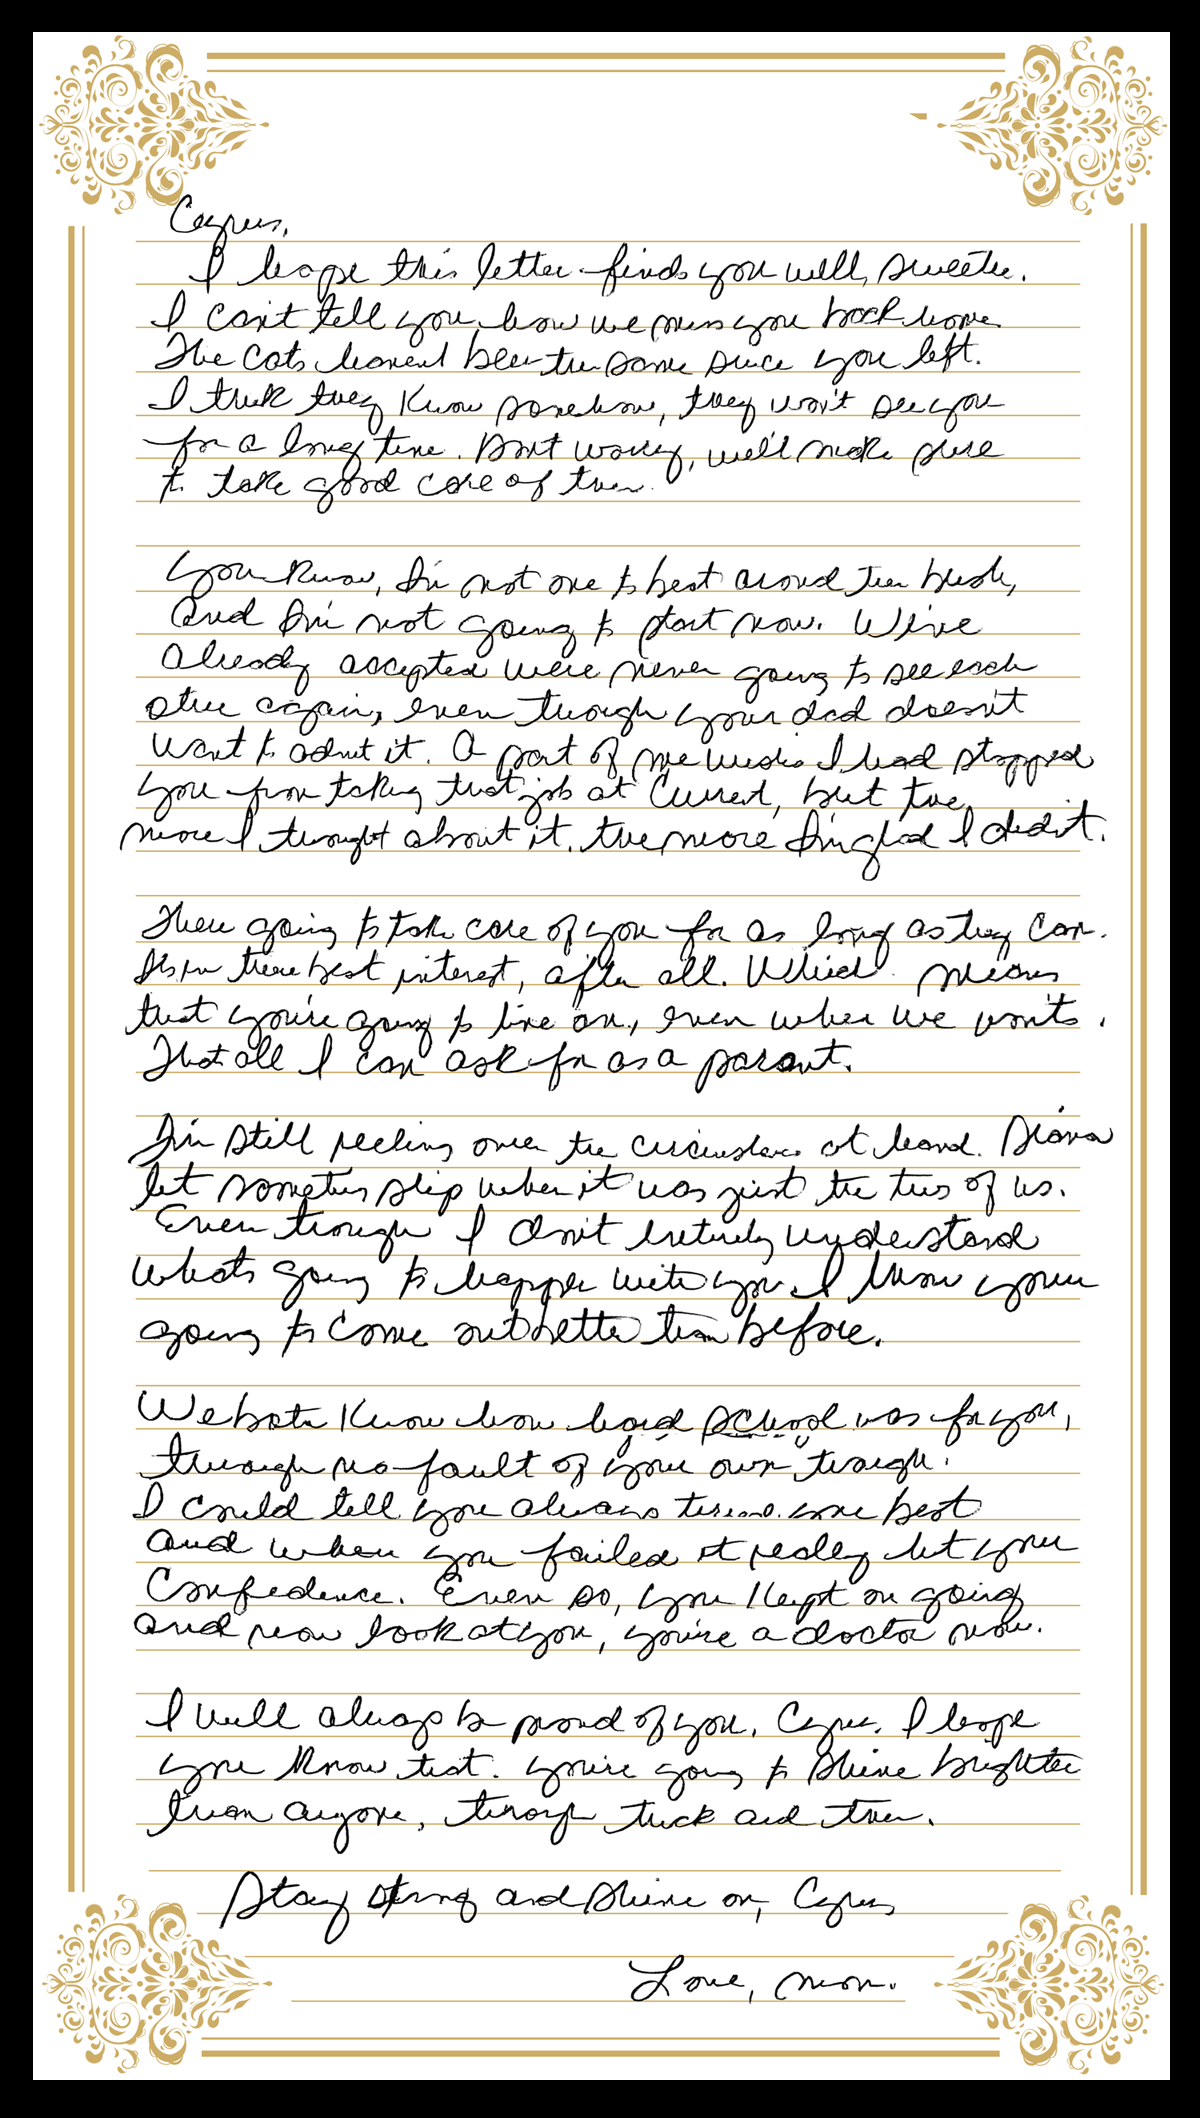 Cyrus,
I hope this letter finds you well, sweetie.
I can't tell you how we miss you back home.
The cats haven't been the same since you left.
I think they know somehow, they won't see you
for a long time. Don't worry, we'll make sure
to take good care of them.
You know, I'm not one to beat around the bush,
and I'm not going to start now. We've
already accepted we're never going to see each
other again, even though your dad doesn't
want to admit it. A part of me wishes I had stopped
you from taking that job at Current, but the
more I thought about it, the more I'm glad I didn't.
They're going to take care of you for as long as they can.
It's in their best interest, after all. Which means
that you're going to live on, even when we won't.
That all I can ask for as a parent.
I'm still reeling over the circumstances at hand. Diana
let something slip when it was just the two of us.
Even though I don't entirely understand
what's going to happen with you, I know you're
going to come out better than before.
We both know how hard school was for you,
through no fault of your own, though.
I could tell you always your best
and when you failed it really hit your
confidence. Even so, you kept on going
and now look at you, you're a doctor now.
I will always be proud of you, Cyrus. I hope
you know that. You're going to shine brighter
than anyone, through thick and thin.
Stay strong and shine on, Cyrus
Love, Mom.